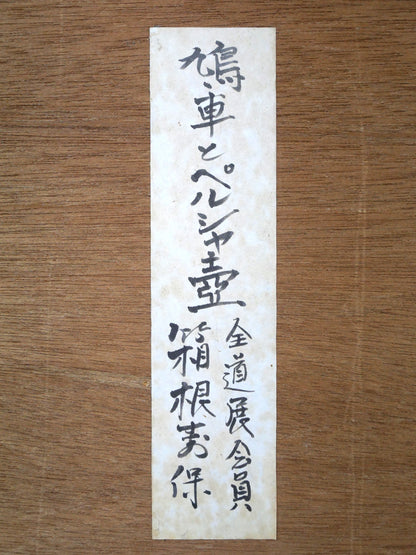 鳩車とペルシャ壺
全道展会員
箱根寿保